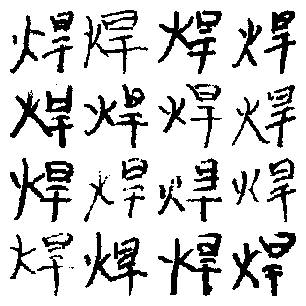 焊焊焊焊
焊焊焊焊
焊焊焊焊
焊焊焊焊